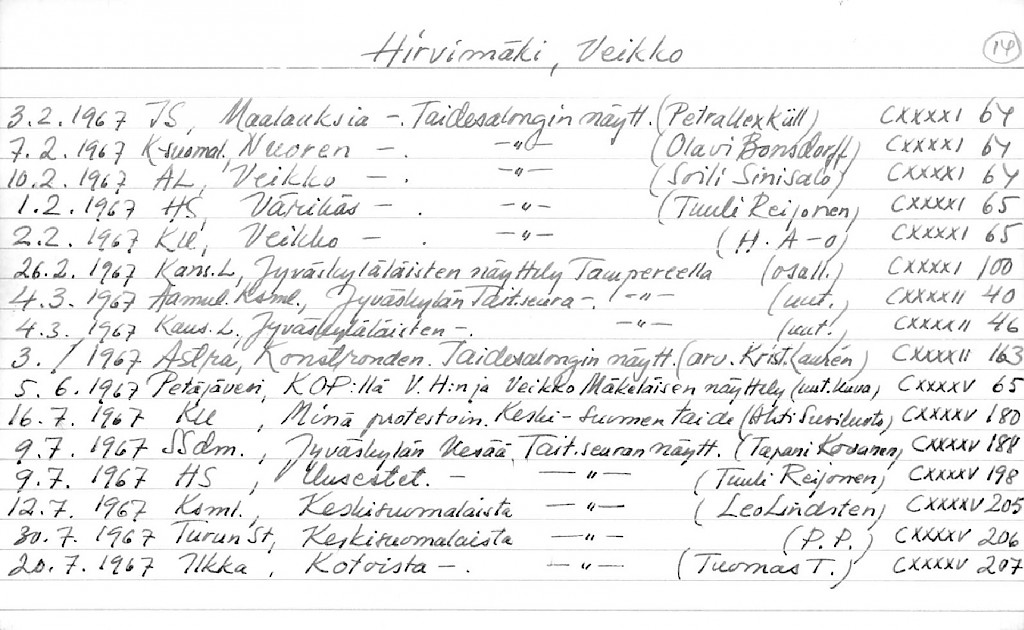 Hirvimäki, Veikko 14
3.2.1967 IS, Maalauksia -. Taidesalongin näytt. (Petra Uexküll) CXXXXI 64
7.2.1967 K-suomal, Nuoren -. -"- (Olavi Bonsdorff) CXXXXI 64
10.2.1967 AL, Veikko -. -"- (Soili Sinisalo) CXXXXI 64
1.2.1967 HS, Värikäs -. -"- (Tuuli Reijonen) CXXXXI 65
2.2.1967 KU, Veikko -. -"- (H. A-o) CXXXXI 65
26.2.1967 Kans.L, Jyväskyläläisten näyttely Tampereella (osall.) CXXXXI 100
4.3.1967 Aamul. Ksml., Jyväskylän Tait.seura -. -"- (uut.) CXXXXII 40
4.3.1967 Kans.L, Jyväskyläläisten -. -"- (uut.) CXXXXII 46
3./1967 Astra, Konstronden. Taidesalongin näytt. (arv. Krist. Laurén) CXXXXII 163
5.6.1967 Petäjävesi, KOP:llä V.H:n ja Veikko Mäkeläisen näyttely (uut. kuva) CXXXXV 65
16.7.1967 KU, Minä protestoin. Keski-Suomen taide (Ahti Susiluoto) CXXXXV 180
9.7.1967 SSdm., Jyväskylän Kesää, Tait.seuran näytt. (Tapani Kovanen) CXXXXV 188
9.7.1967 HS, Uusestet. - -"- (Tuuli Reijonen) CXXXXV 198
12.7.1967 Ksml., Keskisuomalaista -"- (Leo Lindsten) CXXXXV 205
30.7.1967 Turun St, Keskisuomalaista -"- (P.P.) CXXXXV 206
20.7.1967 Ilkka, Kotoista -. -"- (Tuomas T.) CXXXXV 207